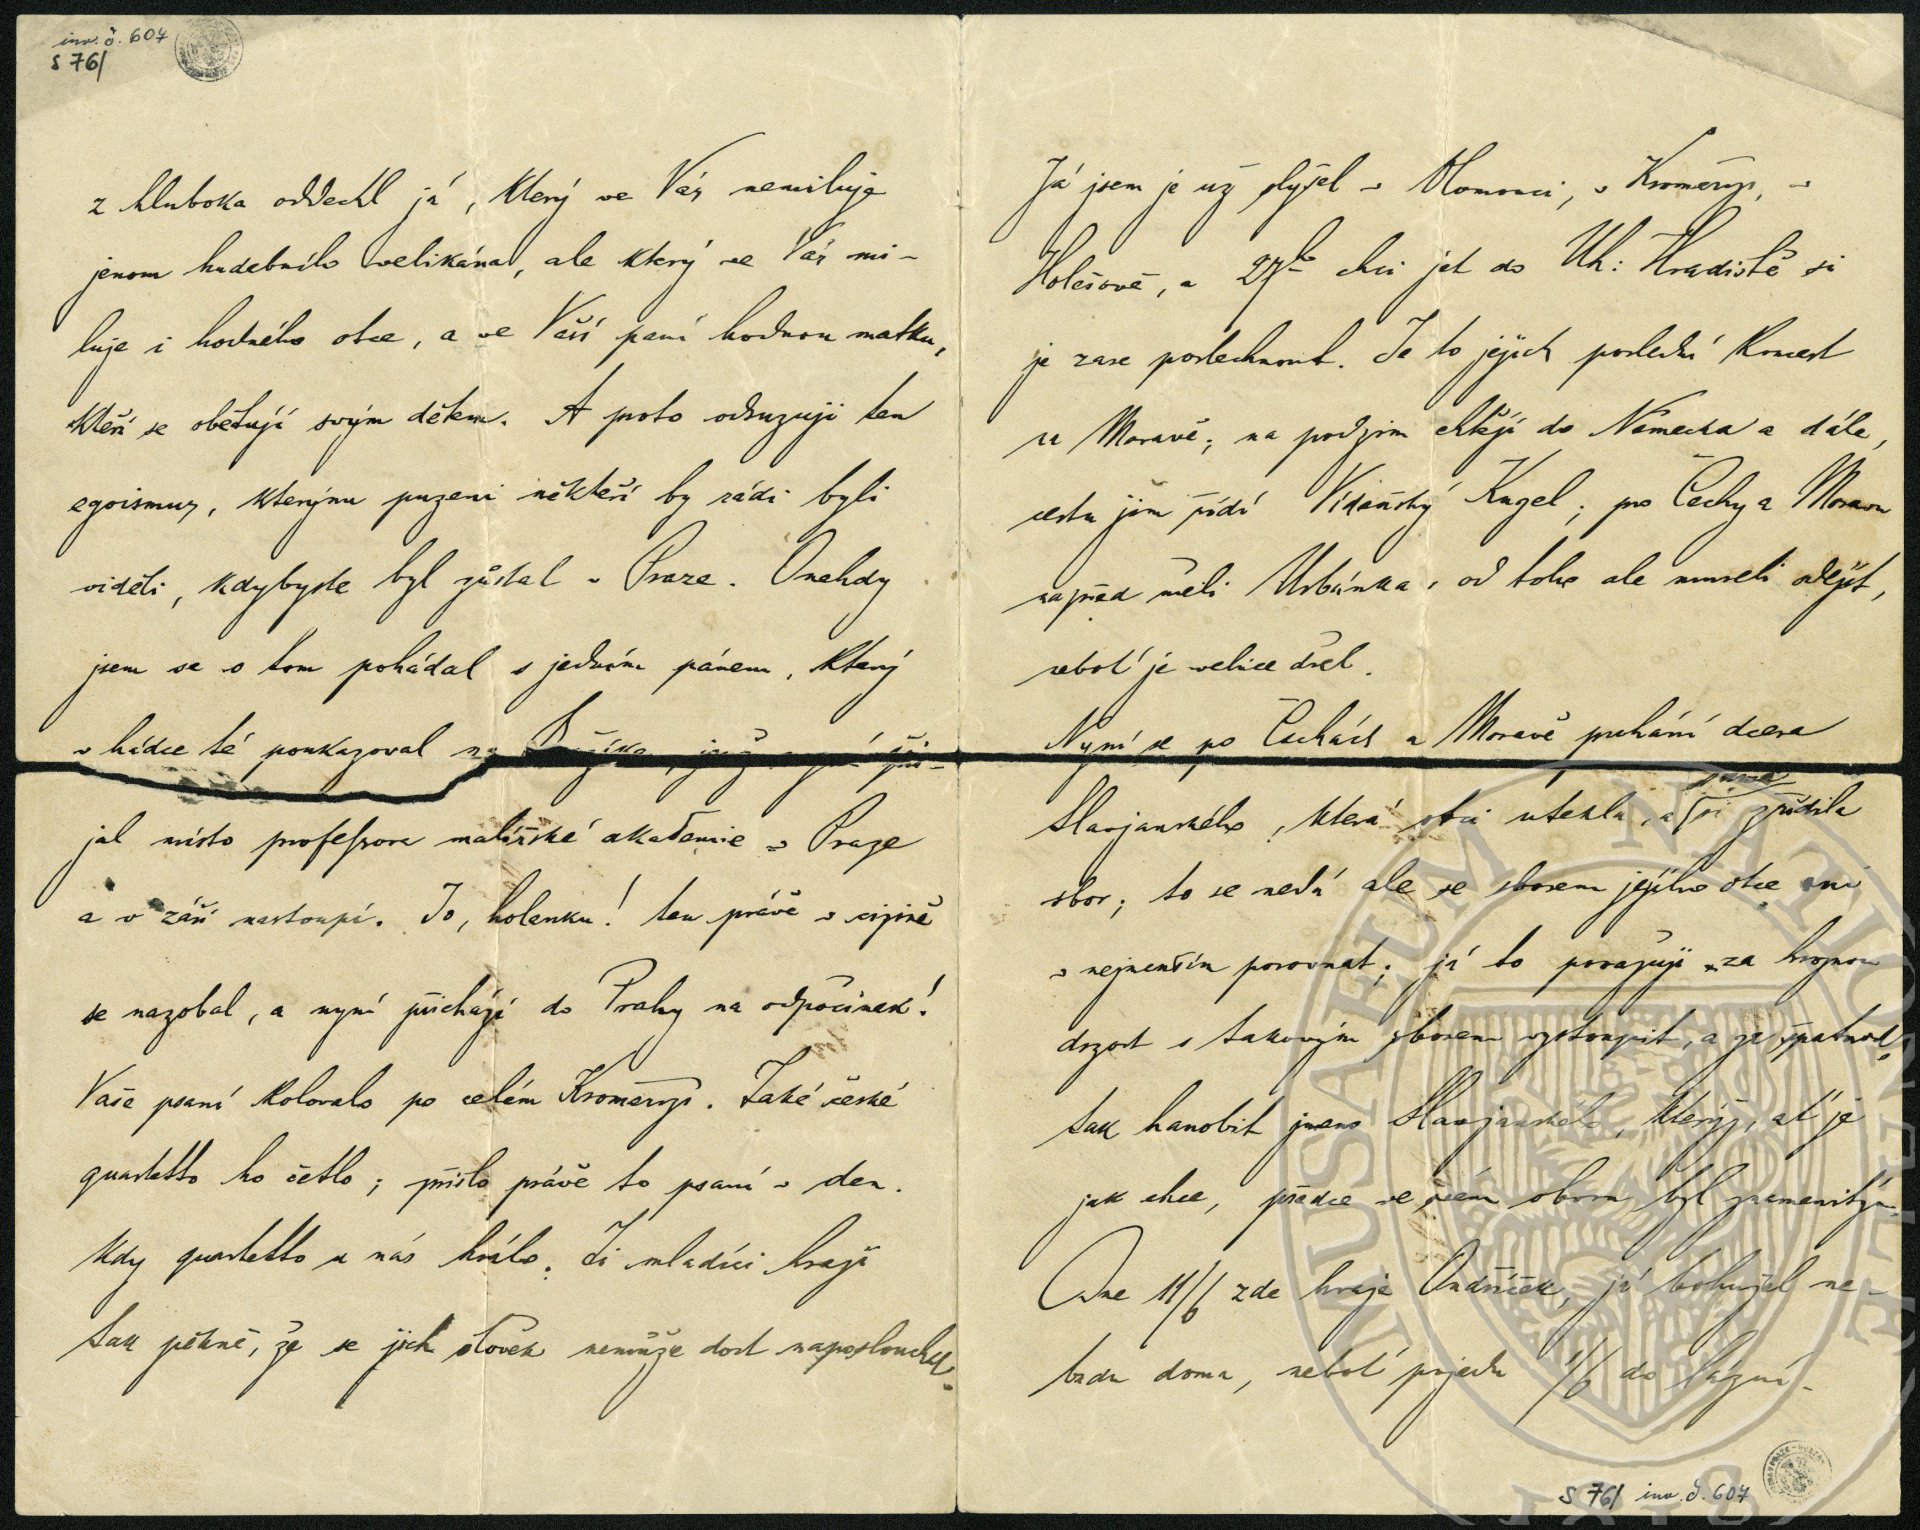 inv. č. 607
S 76/
z hluboka oddechl já, který ve Vás nemiluje
jenom hudebního velikána, ale který ve Vás mi-
luje i hodného otce, a ve Vaší paní hodnou matku,
kteří se obětují svým dětem. A proto odsuzuji ten
egoismus, kterýmu puzeni někteří by rádi byli
viděli, kdybyste byl zůstal v Praze. Onehdy
jsem se o tom pohádal s jedním pánem, který
v hádce té poukazoval na
jal místo professora malířské akademie v Praze
a v září nastoupí. Jo, holenku! ten právě v cizině
se nazobal, a nyní přichází do Prahy na odpočinek!
Vaše psaní kolovalo po celém Kroměryži. Také české
quartetto ho četlo; přišlo právě to psaní v den.
kdy quartetto u nás hrálo. Ti mladíci hrají
tak pěkně, že se jich člověk nemůže dost naposlouchat.
Já jsem je už slyšel v Olomouci, v Kroměryži, v
Holešově, a 27ho chci jet do Uh: Hradiště si
je zase poslechnout. Je to jejich poslední koncert
na Moravě; na podzim chtějí do Německa a dále,
cestu jim řídí Vídeňský Kugel; pro Čechy a Moravu
napřed měli Urbánka, od toho ale museli odejít,
neboť je velice dřel.
Nyní se po Čechách a Moravě prohání dcera
Slavjanského, která otci utekla, a si sama zřídila
sbor; to se nedá ale se sborem jejího otce ani
v nejmenším porovnat; já to považuji za hroznou
drzost s takovým sborem vystoupit, a za špatnost,
tak hanobit jmeno Slavjanského, kterýž, ať je
jak chce, předce ve svém oboru byl znamenitým.
Dne 11/6 zde hraje Ondříček, já bohužel ne-
budu doma, neboť pojedu 1/6 do lázní-
S 76/ inv. č. 607
MUSAEUM NATIONALE
1818